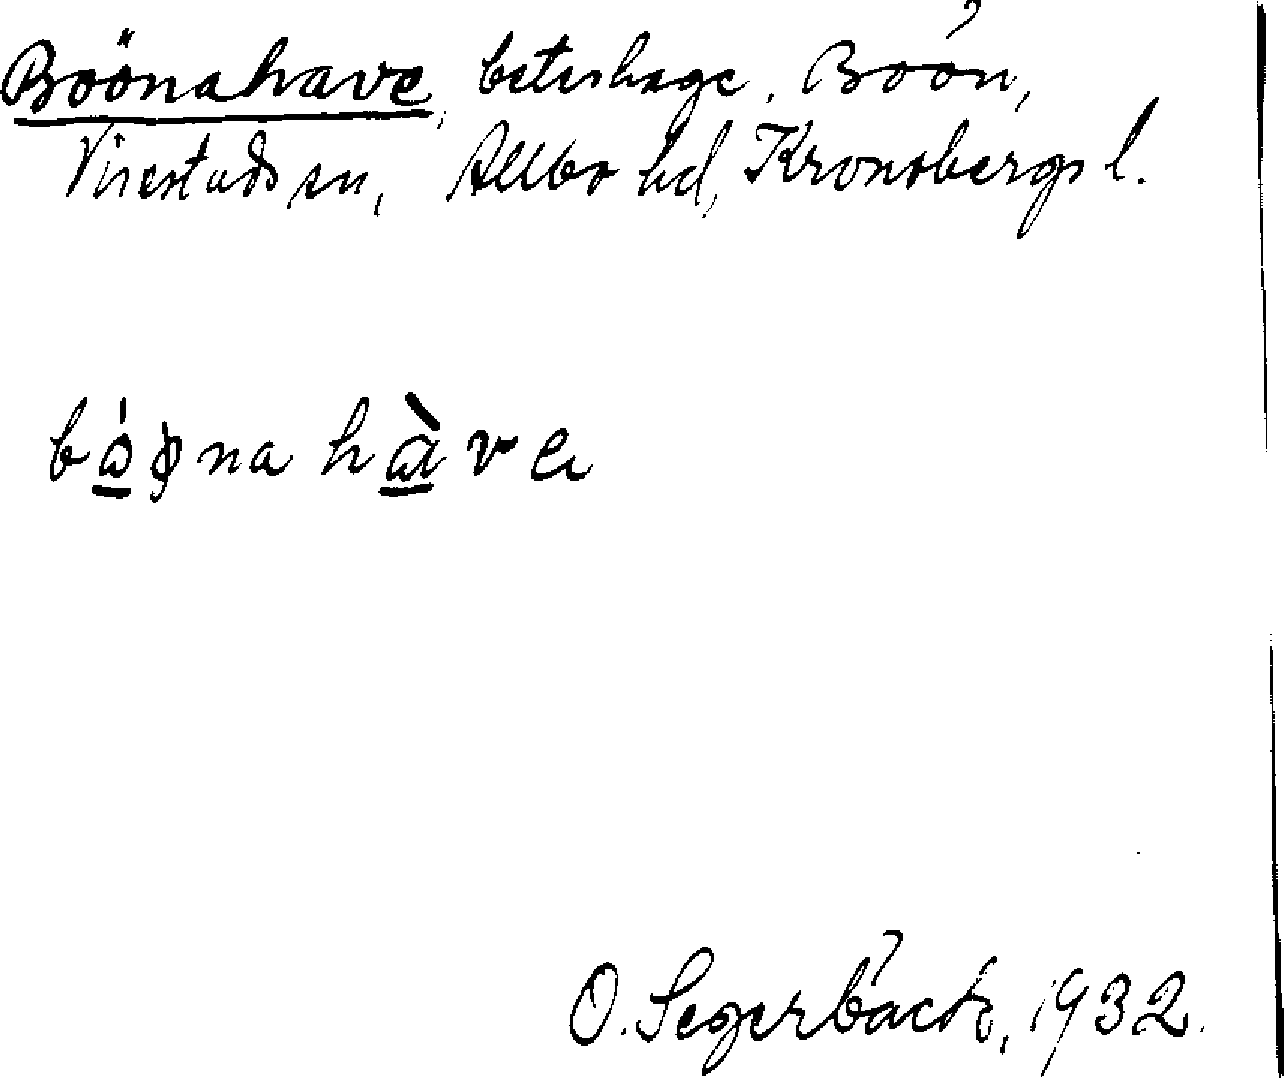 Böönahave, beteshage, Böön,
Virestads sn, Allbo hd, Kronobergs l.
bo̲ø̀na hɑ̲̀va
O. Segerbäck, 1932.